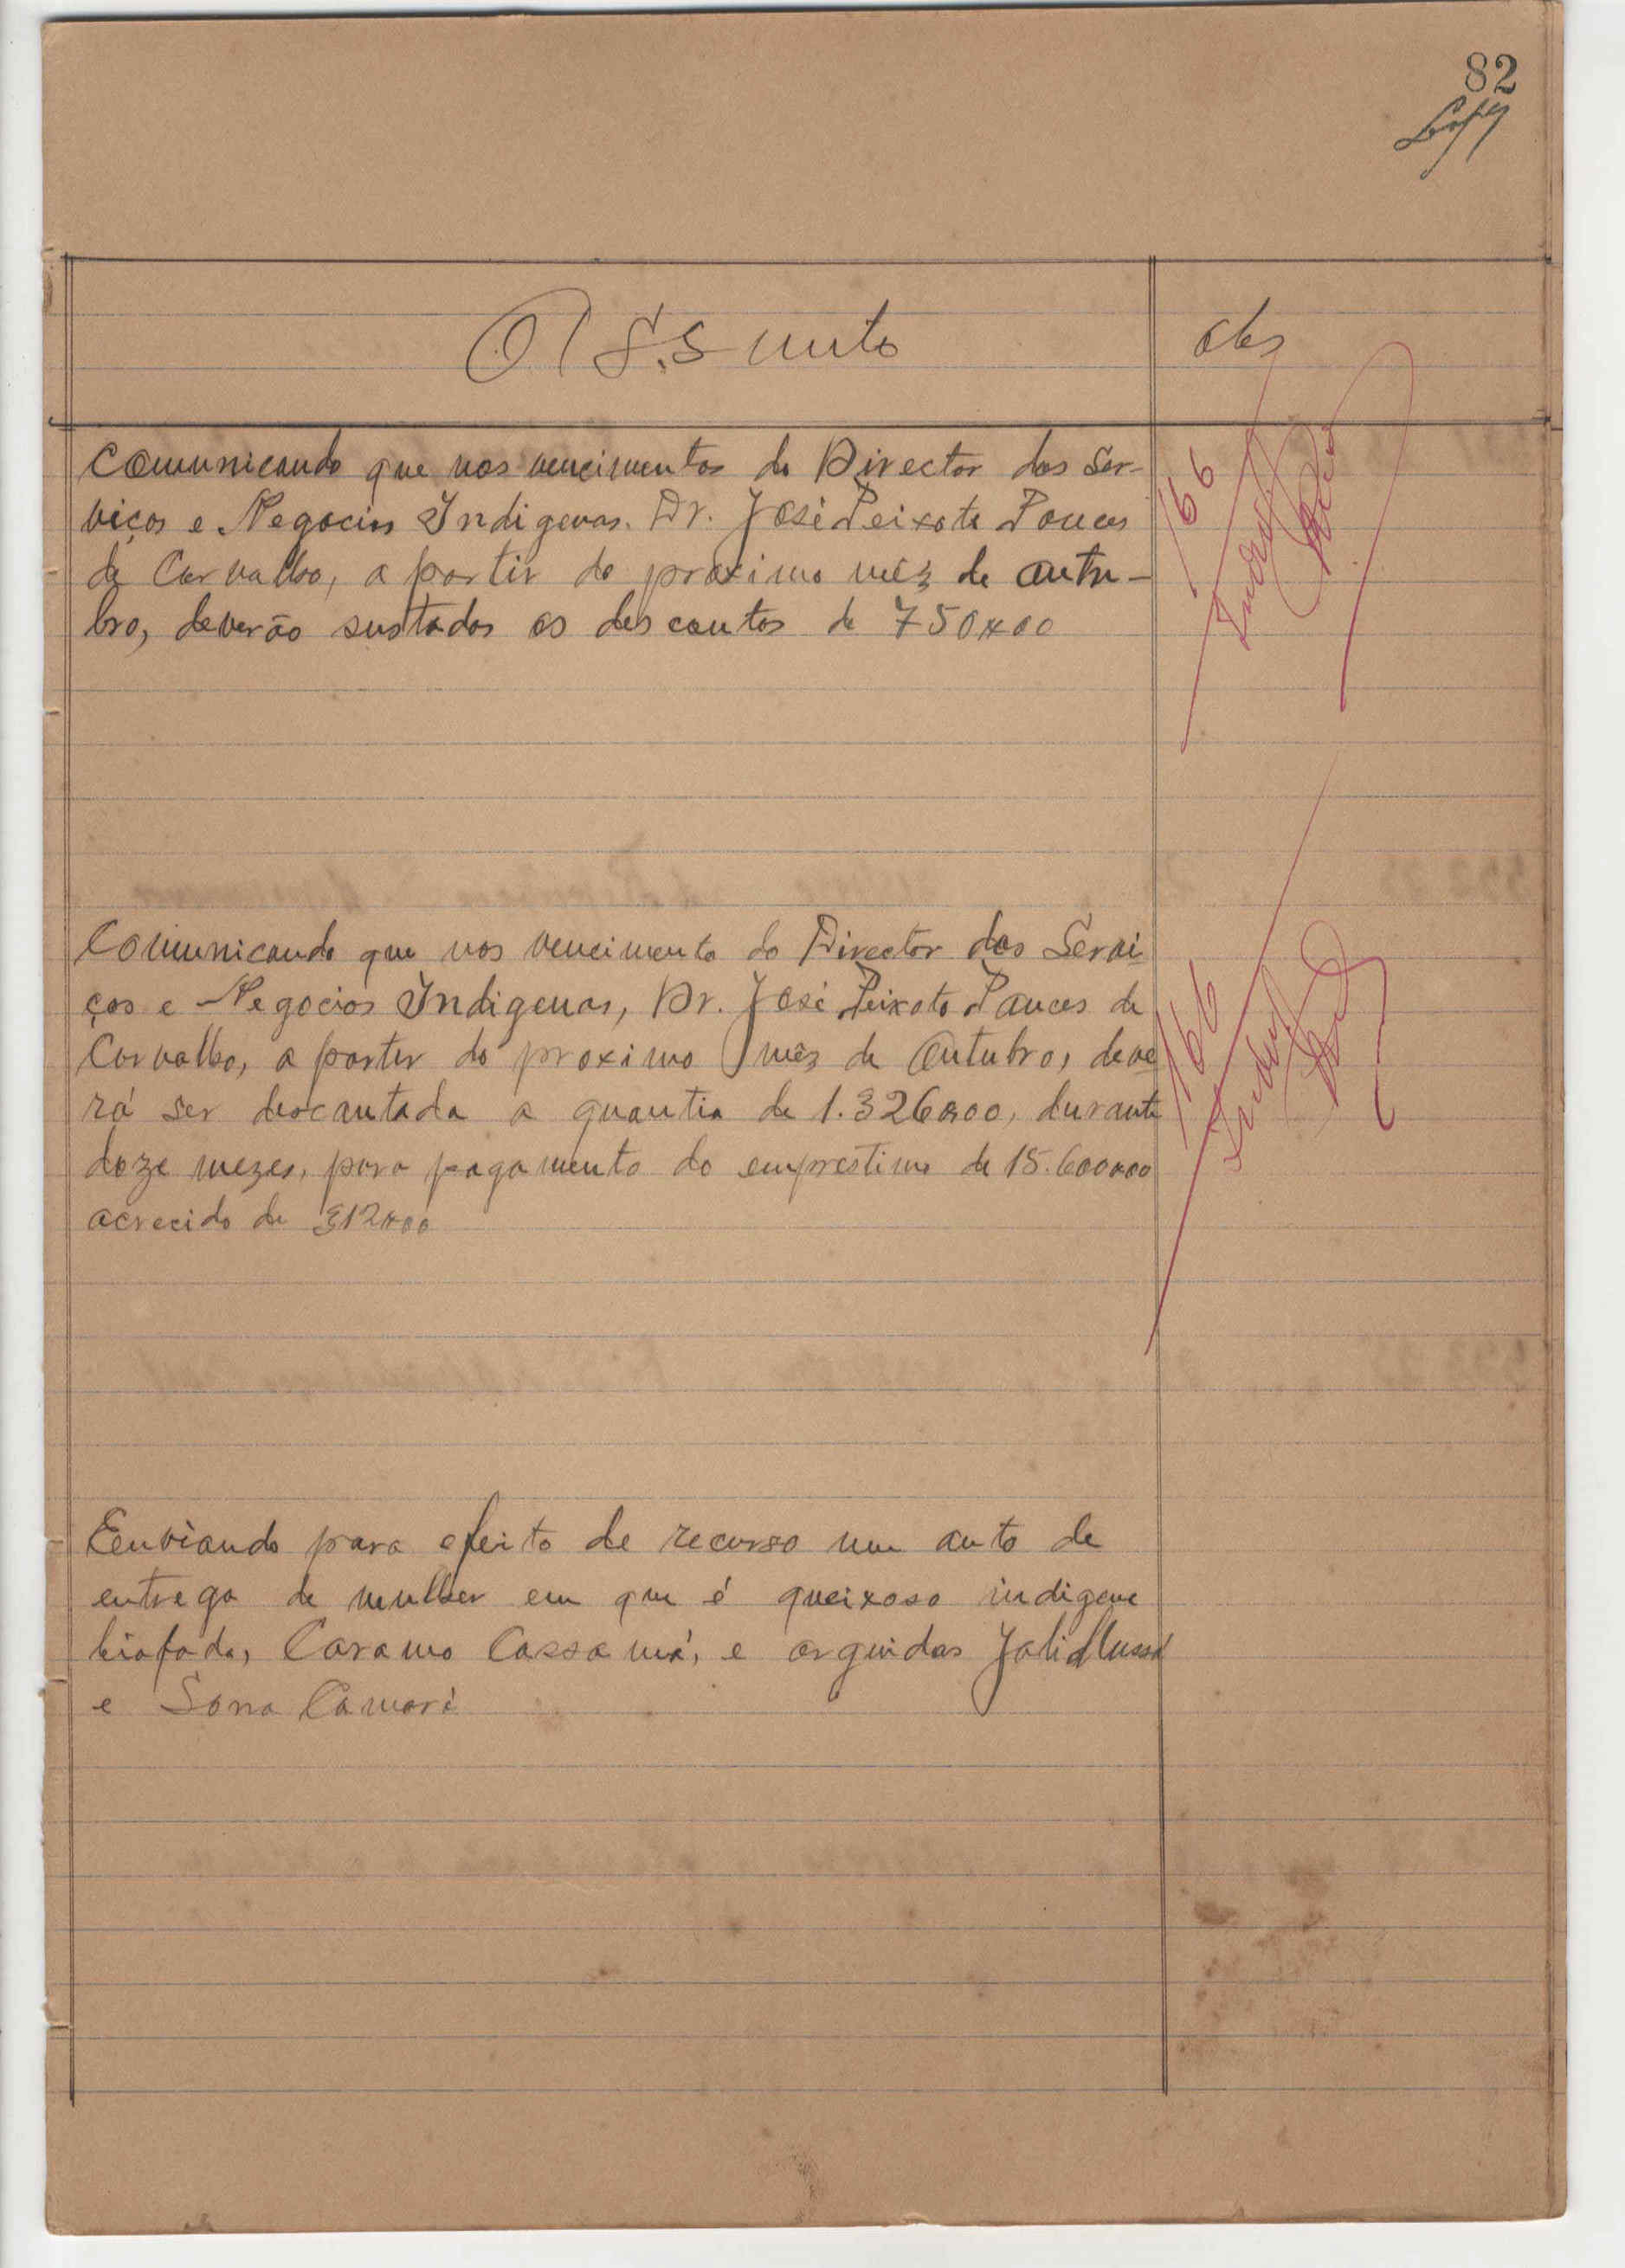 82
Assunto
obs
Comunicando que nos vencimentos do Director dos Ser-
viços e Negocios Indigenas. Dr. José Peixoto Ponces
de Carvalho, a partir do proximo mêz de Outu-
bro, deverão sustados os descontos de 750x00
166
Comunicando que nos vencimento do Director dos Servi
ços e Negocios Indigenas, Dr. José Peixoto Ponces de
Carvalho, a partir do proximo mês de Outubro, deve
rá ser descontada a quantia de 1.326x00, durante
doze mezes, para pagamento do emprestimo de 15.600x00
acrecido de 312x00
166
Eenviando para efeito de recurso um auto de
entrega de mulher em que é queixoso indigena
biafada, Caramo Cassamá, e arguidas Jali Mussá
e Sona Camará